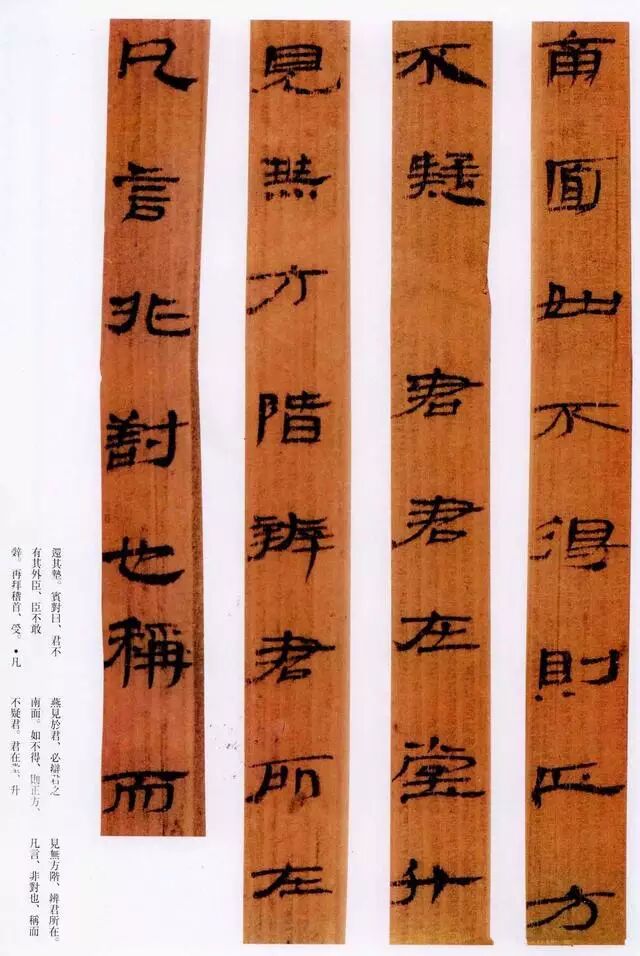 南面如不得則正方
不疑君君在堂升
見無方階辨君所在
凡言非對也稱而
還其摯。賓對曰、君不
有其外臣、臣不敢
辤。再拜稽首、受。•凡
燕見於君、必辯君之
南面。如不得、則正方、
不疑君。君在堂、升
見無方階、辨君所在。
凡言、非對也、稱而